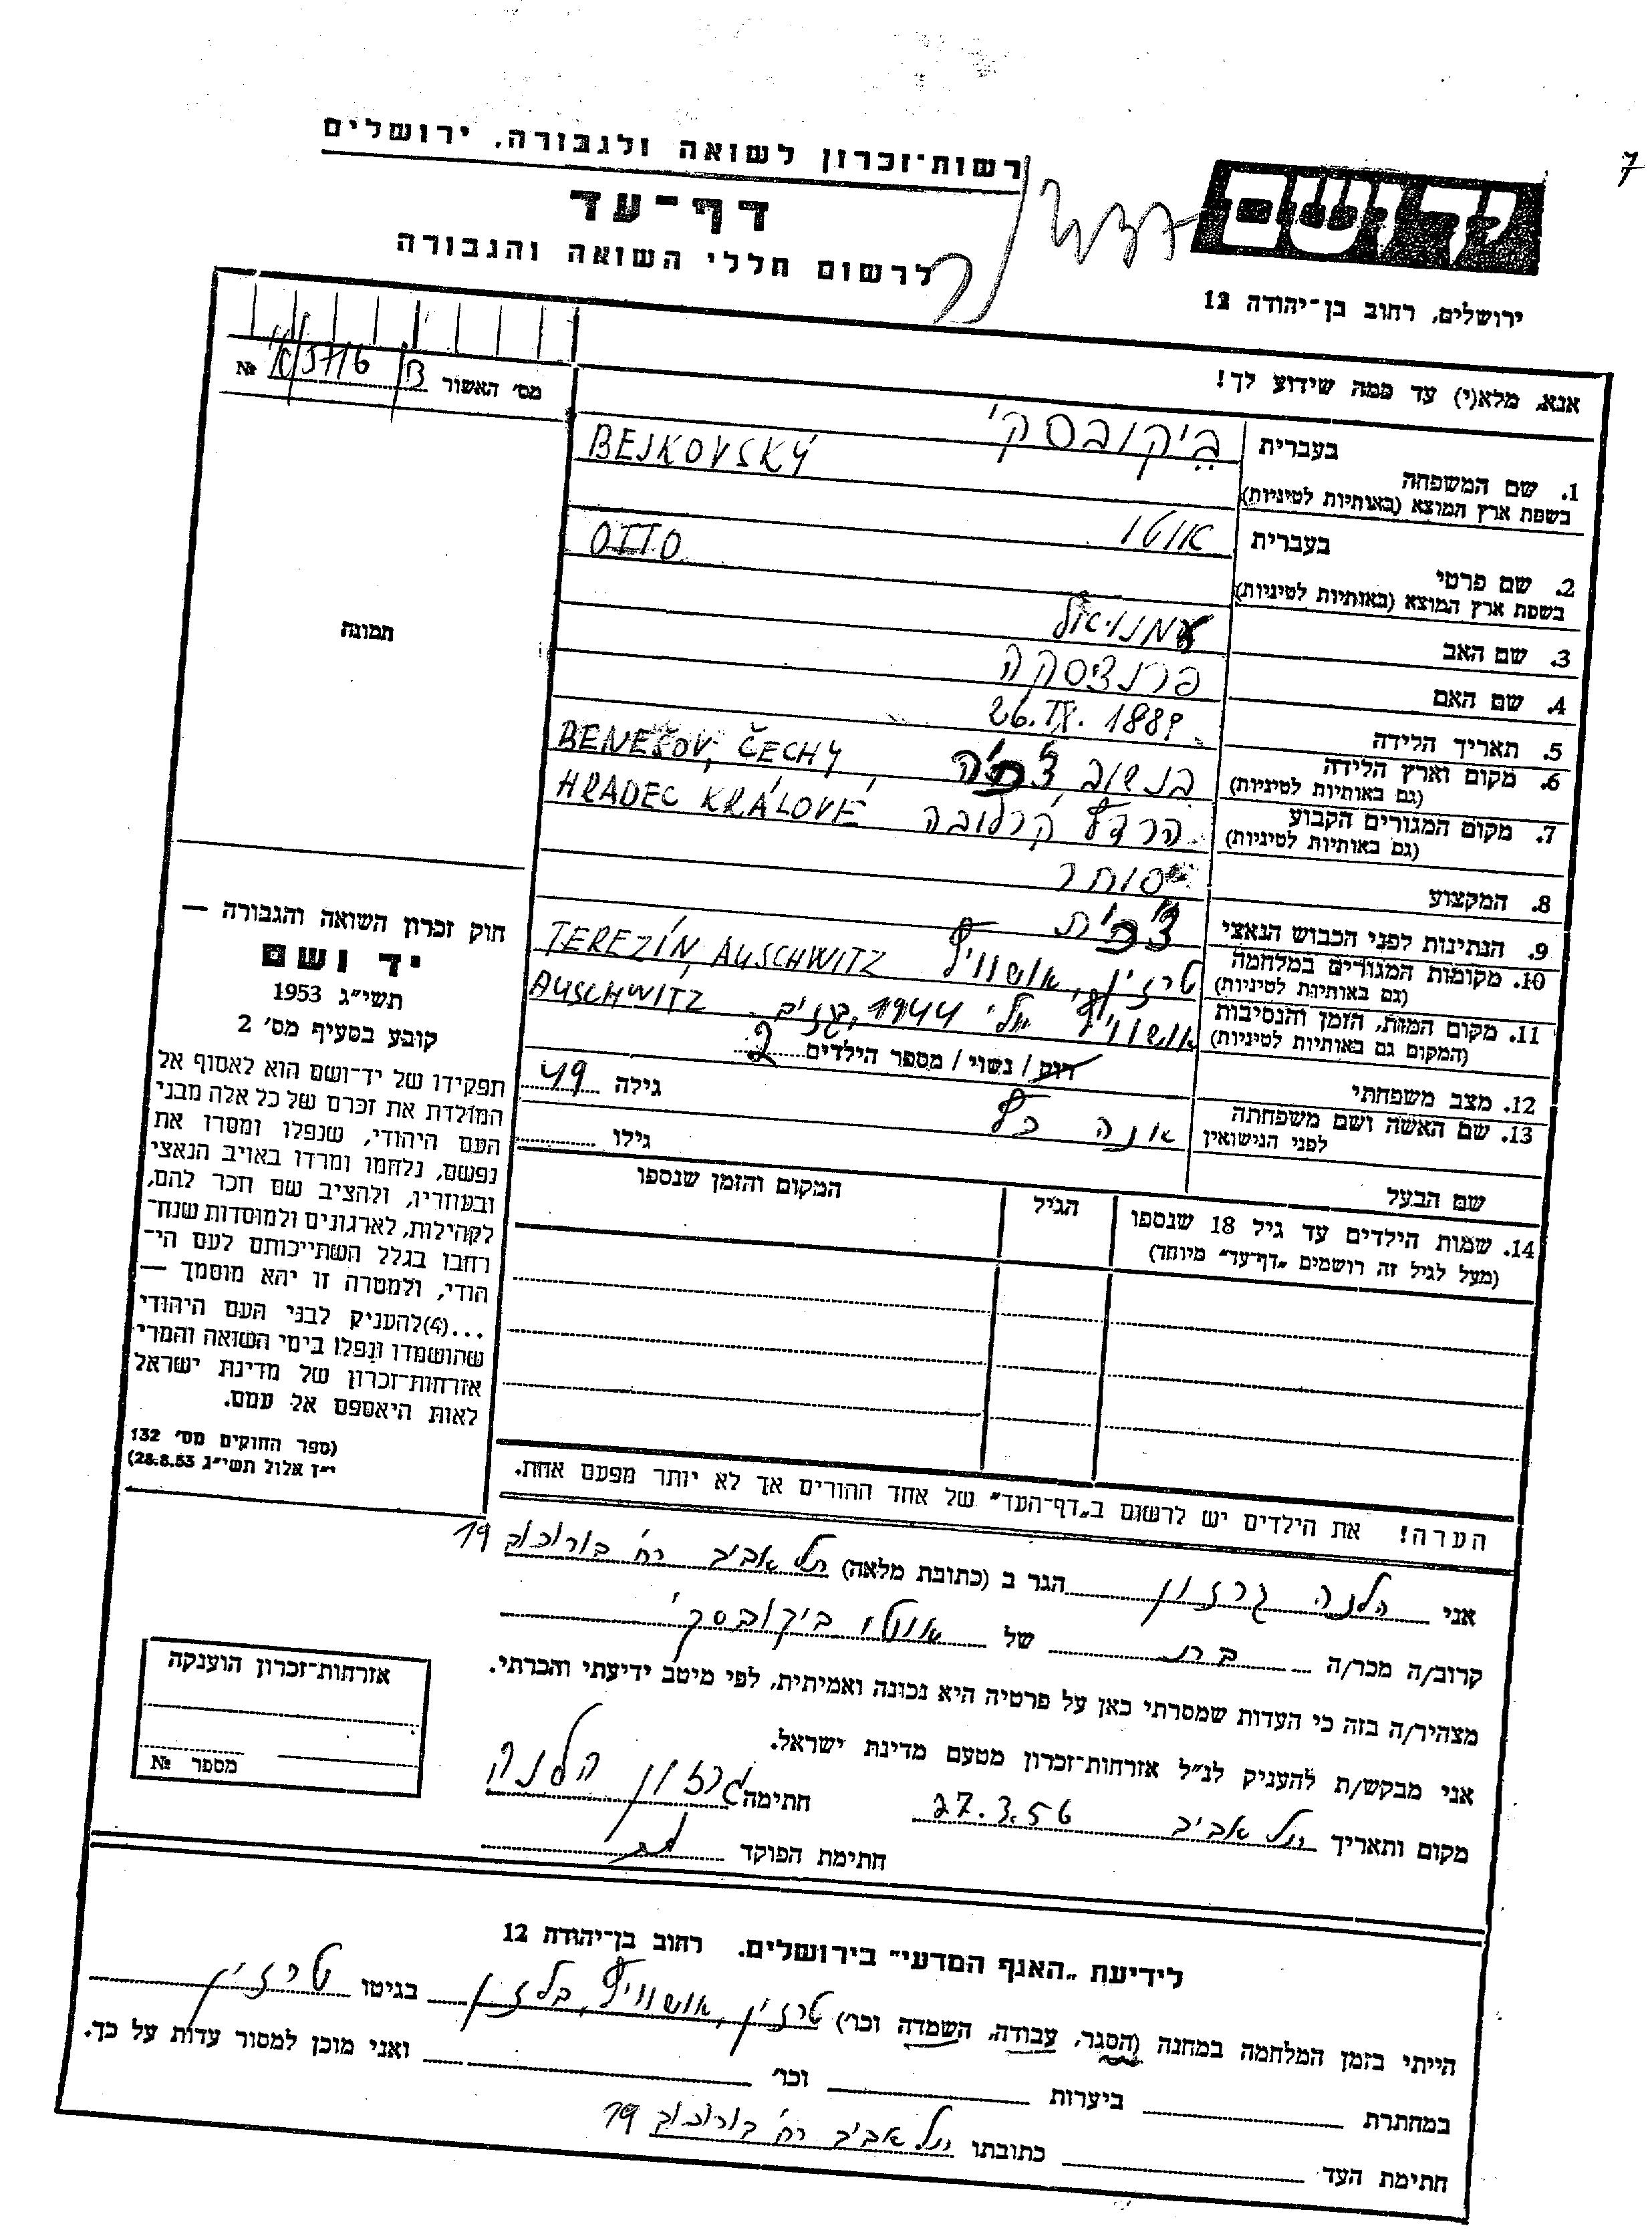 7
רשות־זכרון לשואה ולגבורה, ירושלים
דף־עד
לרשום חללי השואה והגבורה
יד ושם
ירושלים, רחוב בן־יהודה 12
מס' האשור № 5716
אנא, מלא(י) עד כמה שידוע לך!
1. שם המשפחה בעברית ביקובסקי
בשפת ארץ המוצא (באותיות לטיניות) BEJKOVSKÝ
2. שם פרטי בעברית אוטו
בשפת ארץ המוצא (באותיות לטיניות) OTTO
3. שם האב עמנויאל
4. שם האם פרנציסקה
5. תאריך הלידה 26.IX.1889
6. מקום וארץ הלידה (גם באותיות לטיניות) בנשוב, צ'כיה, BENEŠOV, ČECHY
7. מקום המגורים הקבוע (גם באותיות לטיניות) הרדץ קרלובה HRADEC KRÁLOVÉ
8. המקצוע סוחר
9. הנתינות לפני הכבוש הנאצי צ'כית
10. מקומות המגורים במלחמה (גם באותיות לטיניות) טרזין, אושוויץ TEREZÍN, AUSCHWITZ
11. מקום המות, הזמן והנסיבות (המקום גם באותיות לטיניות) אושוויץ יולי 1944, בגזים. AUSCHWITZ
12. מצב משפחתי רווק / נשוי / מספר הילדים 2
13. שם האשה ושם משפחתה לפני הנישואין אנה כץ גילה 49
שם הבעל גילו
14. שמות הילדים עד גיל 18 שנספו (מעל לגיל זה רושמים "דף־עד" מיוחד) הגיל המקום והזמן שנספו
תמונה
חוק זכרון השואה והגבורה —
יד ושם
תשי"ג 1953
קובע בסעיף מס' 2
תפקידו של יד־ושם הוא לאסוף אל
המולדת את זכרם של כל אלה מבני
העם היהודי, שנפלו ומסרו את
נפשם, נלחמו ומרדו באויב הנאצי
ובעוזריו, ולהציב שם וזכר להם,
לקהילות, לארגונים ולמוסדות שנח־
רבו בגלל השתייכותם לעם הי־
הודי, ולמטרה זו יהא מוסמך —
...(4) להעניק לבני העם היהודי
שהושמדו ונפלו בימי השואה והמרי
אזרחות־זכרון של מדינת ישראל
לאות היאספם אל עמם.
(ספר החוקים מס' 132
י"ז אלול תשי"ג 28.8.53)
הערה! את הילדים יש לרשום ב"דף־העד" של אחד ההורים אך לא יותר מפעם אחת.
אני הלנה גרזון הגר ב (כתובת מלאה) תל אביב רח' בורוכוב 19
קרוב/ה מכר/ה בת של אוטו ביקובסקי
מצהיר/ה בזה כי העדות שמסרתי כאן על פרטיה היא נכונה ואמיתית, לפי מיטב ידיעתי והכרתי.
אני מבקש/ת להעניק לנ"ל אזרחות־זכרון מטעם מדינת ישראל.
מקום ותאריך תל אביב 27.3.56 חתימה גרזון הלנה
חתימת הפוקד
אזרחות־זכרון הוענקה
מספר №
לידיעת "האגף המדעי" בירושלים. רחוב בן־יהודה 12
הייתי בזמן המלחמה במחנה (הסגר, עבודה, השמדה וכר') טרזין, אושוויץ, בלזן בגיטו טרזין
במחתרת ביערות וכר' ואני מוכן למסור עדות על כך.
חתימת העד כתובתו תל אביב רח' בורוכוב 19